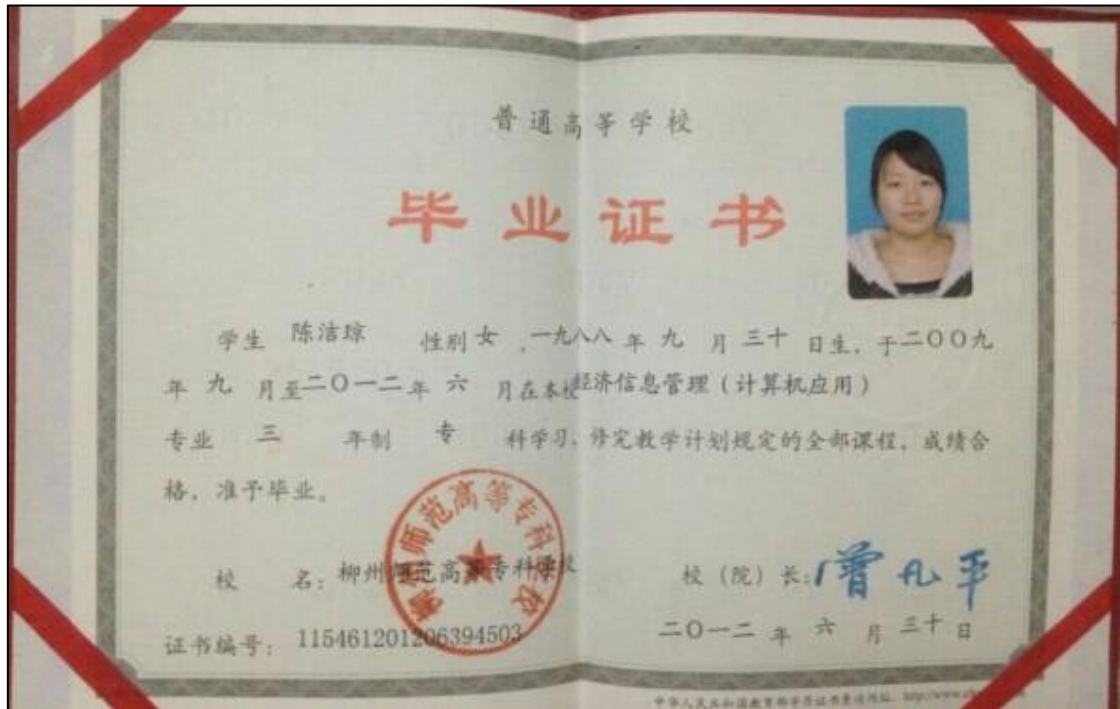 普通高等学校
毕业证书
学生 陈洁琼 性别 女 ,一九八八 年 九 月 三十 日生, 于二〇〇九
年 九 月至二〇一二年 六 月在本校经济信息管理(计算机应用)
专业 三 年制 专 科学习, 修完教学计划规定的全部课程, 成绩合
格, 准予毕业。
师范高等专科
校 名: 柳州师范高等专科学校
校(院)长: 曾凡平
证书编号: 115461201206394503
二〇一二 年 六 月 三十 日
中华人民共和国教育部学历证书查询网址: http://www.